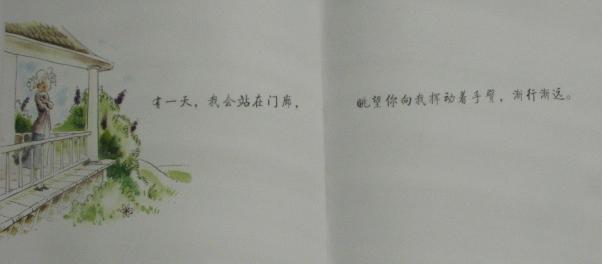 有一天，我会站在门廊，
眺望你向我挥动着手臂，渐行渐远。